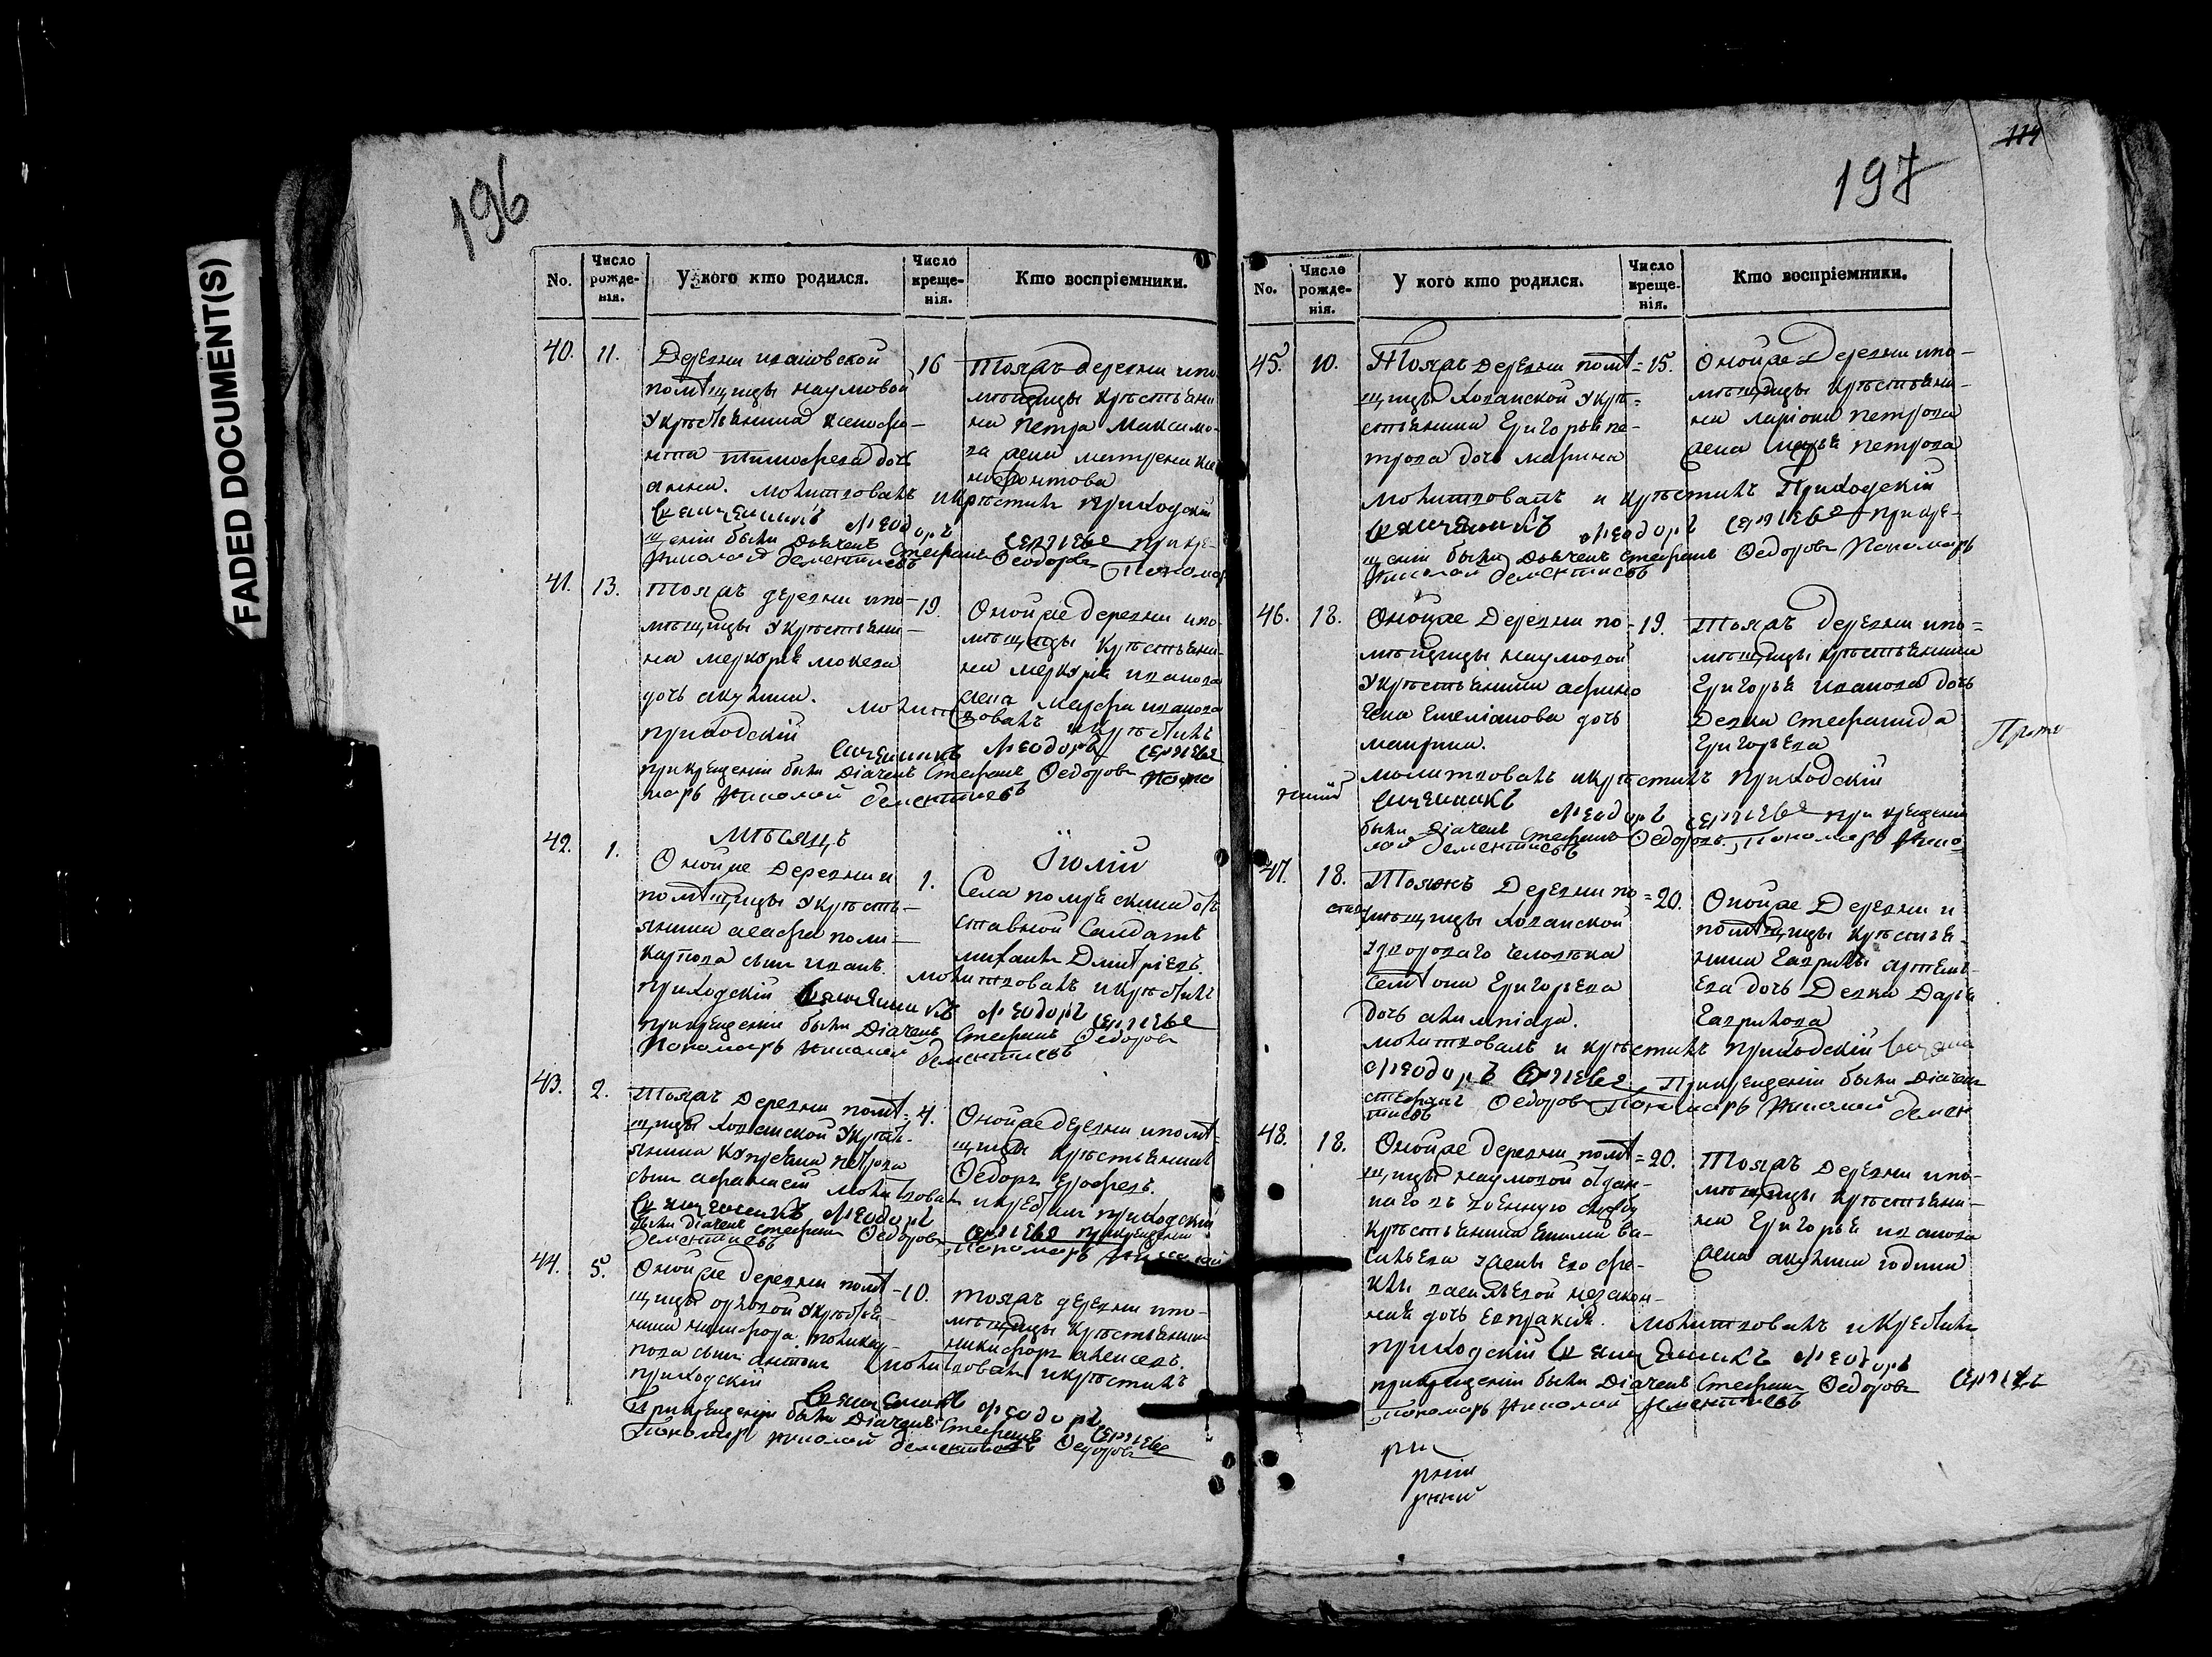 FADED DOCUMENT(S)
196
No.
Число рожде- нія.
У кого кто родился.
Число креще- нія.
Кто воспріемники.
40. 11.
Деревни ивановской
помѣщицы наумовой
у крестьянина ксенофо-
нта тимофеева дочь
анна. молитвовалъ и крѣстилъ приходскій
священникъ Ѳеодоръ Сергіевъ при кре-
щеніи были Дьячекъ Стефанъ Ѳедоровъ Пономарь
Николай дементиевъ
16
Тояжъ деревни и по-
мѣщицы крѣстьяни-
на петра Максимо-
ва жена матрена
41. 13.
Тояжъ деревни и по-
мѣщицы у крѣстьяни-
на меркурья мокева
дочь акулина. молитвовалъ и крѣстилъ
приходскій Сщенникъ Ѳеодоръ Сергіевъ
при крещеніи были Діячекъ Стефанъ Ѳедоровъ поно
марь Николай дементиевъ
19.
Оной же деревни и по-
мѣщицы крѣстьяни-
на меркурія иванова
жена марфа иванова
Мѣсяцъ Іюлій
42. 1.
Оной же Деревни и
помѣщицы у крѣсть-
янина поли-
карпова сынъ иванъ. молитвовалъ и крѣстилъ
приходскій священникъ Ѳеодоръ Сергіевъ
при крещеніи были Діячекъ Стефанъ Ѳедоровъ
Пономарь Николай дементиевъ
1.
Села
ставной Салдатъ
михаилъ Дмитріевъ.
43. 2.
Тояжъ Деревни помѣ-
щицы у крѣсть-
янина петрова
сынъ афанасей молитвовалъ и крестилъ приходскій
священникъ Ѳеодоръ Сергіевъ при крещеніи
были діячекъ стефанъ Ѳедоровъ Пономарь Николай
дементиевъ
4.
Оной же деревни и помѣ-
щицы крѣстьянинъ
Ѳедоръ ерофеевъ.
44. 5.
Оной же деревни помѣ-
щицы у крѣстья-
нина никифора поликар-
пова сынъ антонъ молитвовалъ и крѣстилъ
приходскій священникъ Ѳеодоръ Сергіевъ
При крещеніи были Діячекъ Стефанъ Ѳедоровъ
Пономарь николай дементиевъ
10.
тояжъ деревни и по-
мѣщицы крѣстьянинъ
никифоръ алексеевъ.
197
114
No.
Число рожде- нія.
У кого кто родился.
Число креще- нія.
Кто воспріемники.
45. 10.
Тояжъ Деревни помѣ-
щицы у крѣ-
стьянина Григорья пе-
трова дочь марина
молитвовалъ и крѣстилъ Приходскій
священникъ Ѳеодоръ Сергіевъ при кре-
щеніи были Дьячекъ стефанъ Ѳедоровъ Пономарь
Николай дементиевъ
15.
Оной же Деревни и по-
мѣщицы крѣстьяни-
на ларіона петрова
жена марья петрова
46. 18.
Оной же Деревни по-
мѣщицы наумовой
у крѣстьянина афино
гена емеліанова дочь
марина.
молитвовалъ и крѣстилъ приходскій
Сщенникъ Ѳеодоръ Сергіевъ при крещеніи
были Діячекъ Стефанъ Ѳедоровъ Пономарь Нико-
лай дементиевъ
19.
Тояжъ деревни и по-
мѣщицы крѣстьянина
Григорья иванова дочь
Девка Стефанида
Григорьева
47. 18.
Тояжъ Деревни по-
мѣщицы
у дворового человѣка
Семіона Григорьева
дочь алимпіада.
молитвовалъ и крѣстилъ приходскій
Ѳеодоръ Сергіевъ При крещеніи были Діячекъ
стефанъ Ѳедоровъ Пономарь Николай демен
тиевъ
20.
Оной же Деревни и
помѣщицы крѣстья-
нина Гаврилы артемь-
ева дочь Девка Дарья
Гаврилова
48. 18.
Оной же деревни помѣ-
щицы наумовой отдан-
наго въ военную службу
крѣстьянина Ва-
сильева жены его фе-
клы васильевой незакон-
ная дочь евпраксія. молитвовалъ и крестилъ
приходскій священникъ Ѳеодоръ Сергіевъ
при крещеніи были Діячекъ Стефанъ Ѳедоровъ
Пономарь Николай дементиевъ
20.
Тояжъ Деревни и по-
мѣщицы крѣстьяни-
на Григорья иванова
жена акулина родина